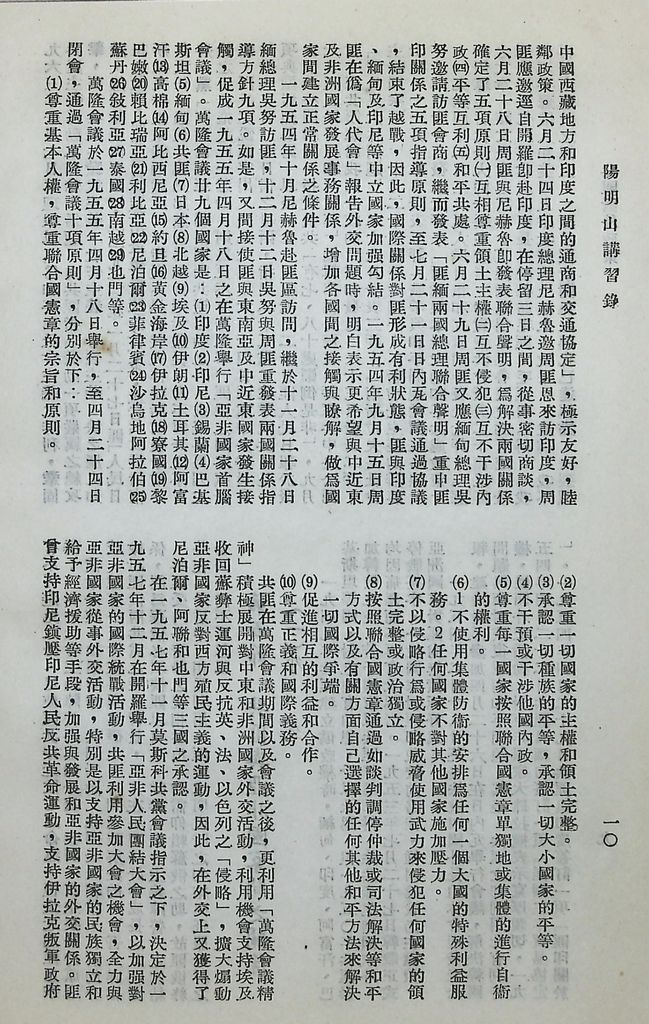 陽明山講習錄
一〇
中國西藏地方和印度之間的通商和交通協定」，極示友好，睦
鄰政策。六月二十四日印度總理尼赫魯邀周匪恩來訪印度，周
匪應邀逕自開羅卽赴印度，在停留三日之間，從事密切商談，
六月二十八日周匪與尼赫魯卽發表聯合聲明，爲解決兩國關係
確定了五項原則㈠互相尊重領土主權㈡互不侵犯㈢互不干涉內
政㈣平等互利㈤和平共處。六月二十九日周匪又應緬甸總理吳
努邀請訪匪會商，繼而發表「匪緬兩國總理聯合聲明」重申匪
印關係之五項指導原則，至七月二十一日日內瓦會議通過協議
，結束了越戰，因此，國際關係對匪形成有利狀態，匪與印度
、緬甸及印尼等中立國家加强勾結。一九五四年九月十五日周
匪在僞「人代會」報告外交問題時，明白表示更希望與中近東
及非洲國家發展事務關係，增加各國間之接觸與瞭解，做爲國
家間建立正常關係之條件。
一九五四年十月尼赫魯赴匪區訪問，繼於十一月二十八日
緬總理吳努訪匪，十二月十二日吳努與周匪重發表兩國關係指
導方針九項。如是，又間接使匪與東南亞及中近東國家發生接
觸，促成一九五五年四月十八日之在萬隆舉行「亞非國家首腦
會議」。萬隆會議廿九個國家是：⑴印度⑵印尼⑶錫蘭⑷巴基
斯坦⑸緬甸⑹共匪⑺日本⑻北越⑼埃及⑽伊朗⑾土耳其⑿阿富
汗⒀高棉⒁阿比西尼亞⒂約旦⒃黃金海岸⒄伊拉克⒅寮國⒆黎
巴嫩⒇賴比瑞亞(21)利比亞(22)尼泊爾(23)菲律賓(24)沙烏地阿拉伯(25)
蘇丹(26)敍利亞(27)泰國(28)南越(29)也門等。
萬隆會議於一九五五年四月十八日舉行，至四月二十四日
閉會，通過「萬隆會議十項原則」，分別於下：
⑴尊重基本人權，尊重聯合國憲章的宗旨和原則。
⑵尊重一切國家的主權和領土完整。
⑶承認一切種族的平等，承認一切大小國家的平等。
⑷不干預或干涉他國內政。
⑸尊重每一國家按照聯合國憲章單獨地或集體的進行自衞
的權利。
⑹1不使用集體防衞的安排爲任何一個大國的特殊利益服
務。2任何國家不對其他國家施加壓力。
⑺不以侵略行爲或侵略威脅使用武力來侵犯任何國家的領
土完整或政治獨立。
⑻按照聯合國憲章通過如談判調停仲裁或司法解決等和平
方式以及有關方面自己選擇的任何其他和平方法來解決
一切國際爭端。
⑼促進相互的利益和合作。
⑽尊重正義和國際義務。
共匪在萬隆會議期間以及會議之後，更利用「萬隆會議精
神」積極展開對中東和非洲國家外交活動，利用機會支持埃及
收回蘇彝士運河與反抗英、法、以色列之「侵略」，擴大煽動
亞非國家反對西方殖民主義的運動，因此，在外交上又獲得了
尼泊爾、阿聯和也門等三國之承認。
在一九五七年十一月莫斯科共黨會議指示之下，決定於一
九五七年十二月在開羅舉行「亞非人民團結大會」，以加强對
亞非國家的國際統戰活動，共匪利用參加大會之機會，全力與
亞非國家從事外交活動，特別是以支持亞非國家的民族獨立和
給予經濟援助等手段，加强與發展和亞非國家的外交關係。匪
曾支持印尼鎭壓印尼人民反共革命運動，支持伊拉克叛軍政府